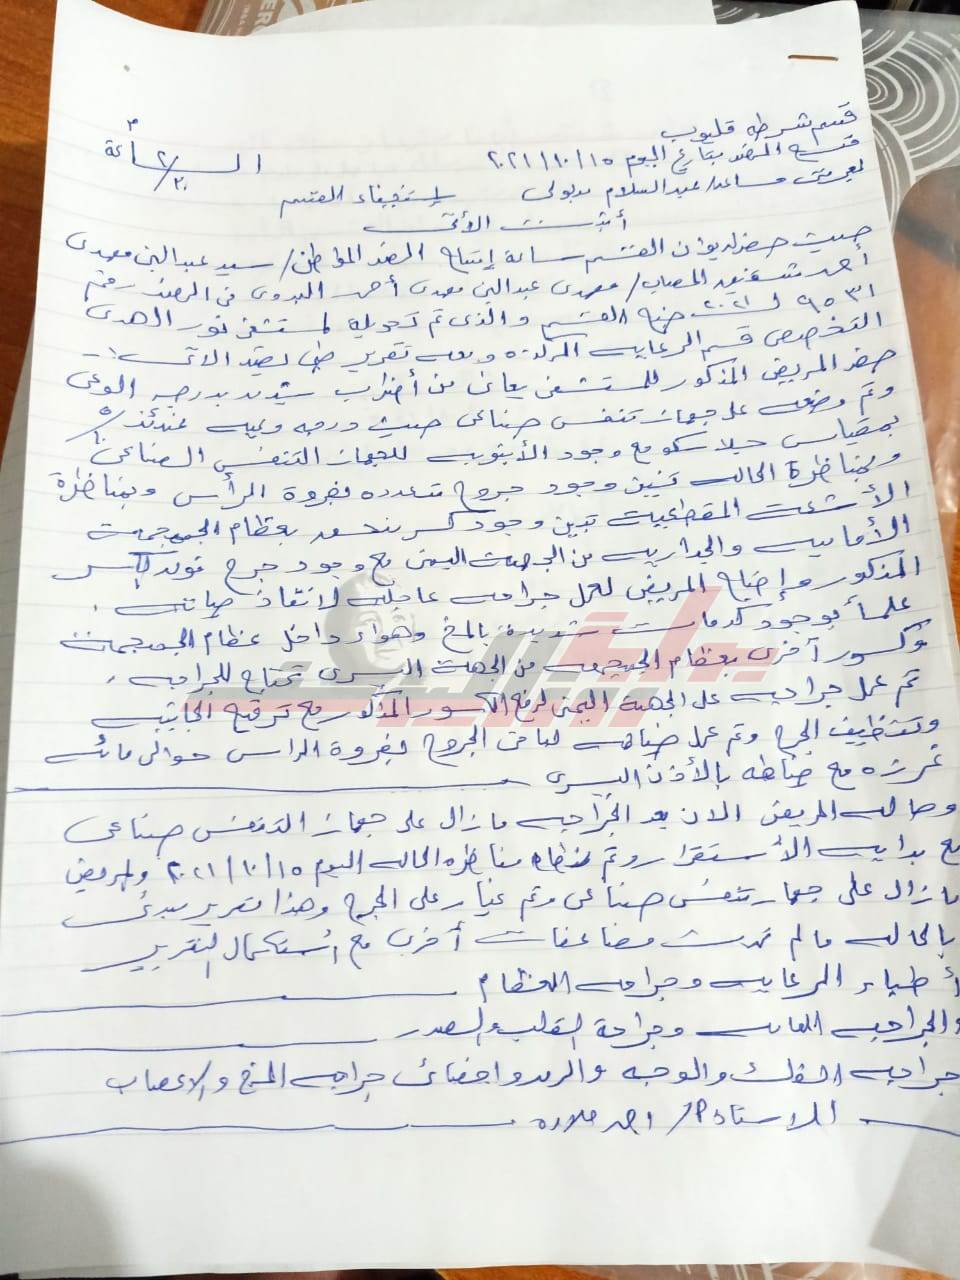 قسم شرطه قليوب
فتح المحضر بتاريخ اليوم ٢٠٢١/١٠/١٥ الساعة
بمعرفتى مساعد/ عبد السلام لاستيفاء القسم
أثبت الآتى
حيث حضر لديوان القسم ساعة إفتتاح المحضر المواطن/ سيد عبد النبى مهدى
أحمد شقيق المصاب/ مهدى عبد النبى مهدى أحمد البدوى فى المحضر رقم
٩٥٣١ ل ٢٠٢١ جنح القسم والذى تم تحويله لمستشفى نور الهدى
التخصصى قسم الرعايه المركزه ومعه تقرير طبى يفيد الآتى :-
حضر المريض المذكور للمستشفى يعانى من أضراب شديد بدرجه الوعى
وتم وضعه على جهاز تنفس صناعى حيث درجه وعيه عندئذ ٥/
بمقياس جلاسكو مع وجود الأنبوبه للجهاز التنفسى الصناعى
وبمناظرة الحاله تبين وجود جروح متعدده بفروة الرأس وبمناظرة
الأشعه المقطعيه تبين وجود كسر منخسف بعظام الجمجمه
الأماميه والجداريه من الجهه اليمنى مع وجود جرح فوق الكسر
المذكور و المريض لعمل جراحه عاجله لانقاذ حياته .
علماً بوجود كدمات شديدة بالمخ وهواء داخل عظام الجمجمه
وكسور آخرى بعظام الجمجمه من الجهه اليسرى تحتاج للجراحه .
تم عمل جراحيه على الجهه اليمنى لرفع الكسور المذكور مع ترقيع
وتنظيف الجرح وتم عمل خياطه لباقى الجروح بفروة الراس حوالى مائه
غرزه مع خياطه بالأذن اليسرى
وحاله المريض الان بعد الجراحيه مازال على جهاز التنفس صناعى
مع بدايه الأستقرار وتم مناظره الحاله اليوم ٢٠٢١/١٠/١٥ والمريض
مازال على جهاز تنفس صناعى وتم غيار على الجرح وهذا تقرير مبدئى
بالحاله مالم تحدث مضاعفات أخرى مع أستكمال التقرير
أطباء الرعايه وجراحه العظام
والجراحيه العامه وجراحة القلب والصدر
جراحيه الفك والوجه والرمد واخصائى جراحه المخ والاعصاب
الاستاذ / احمد